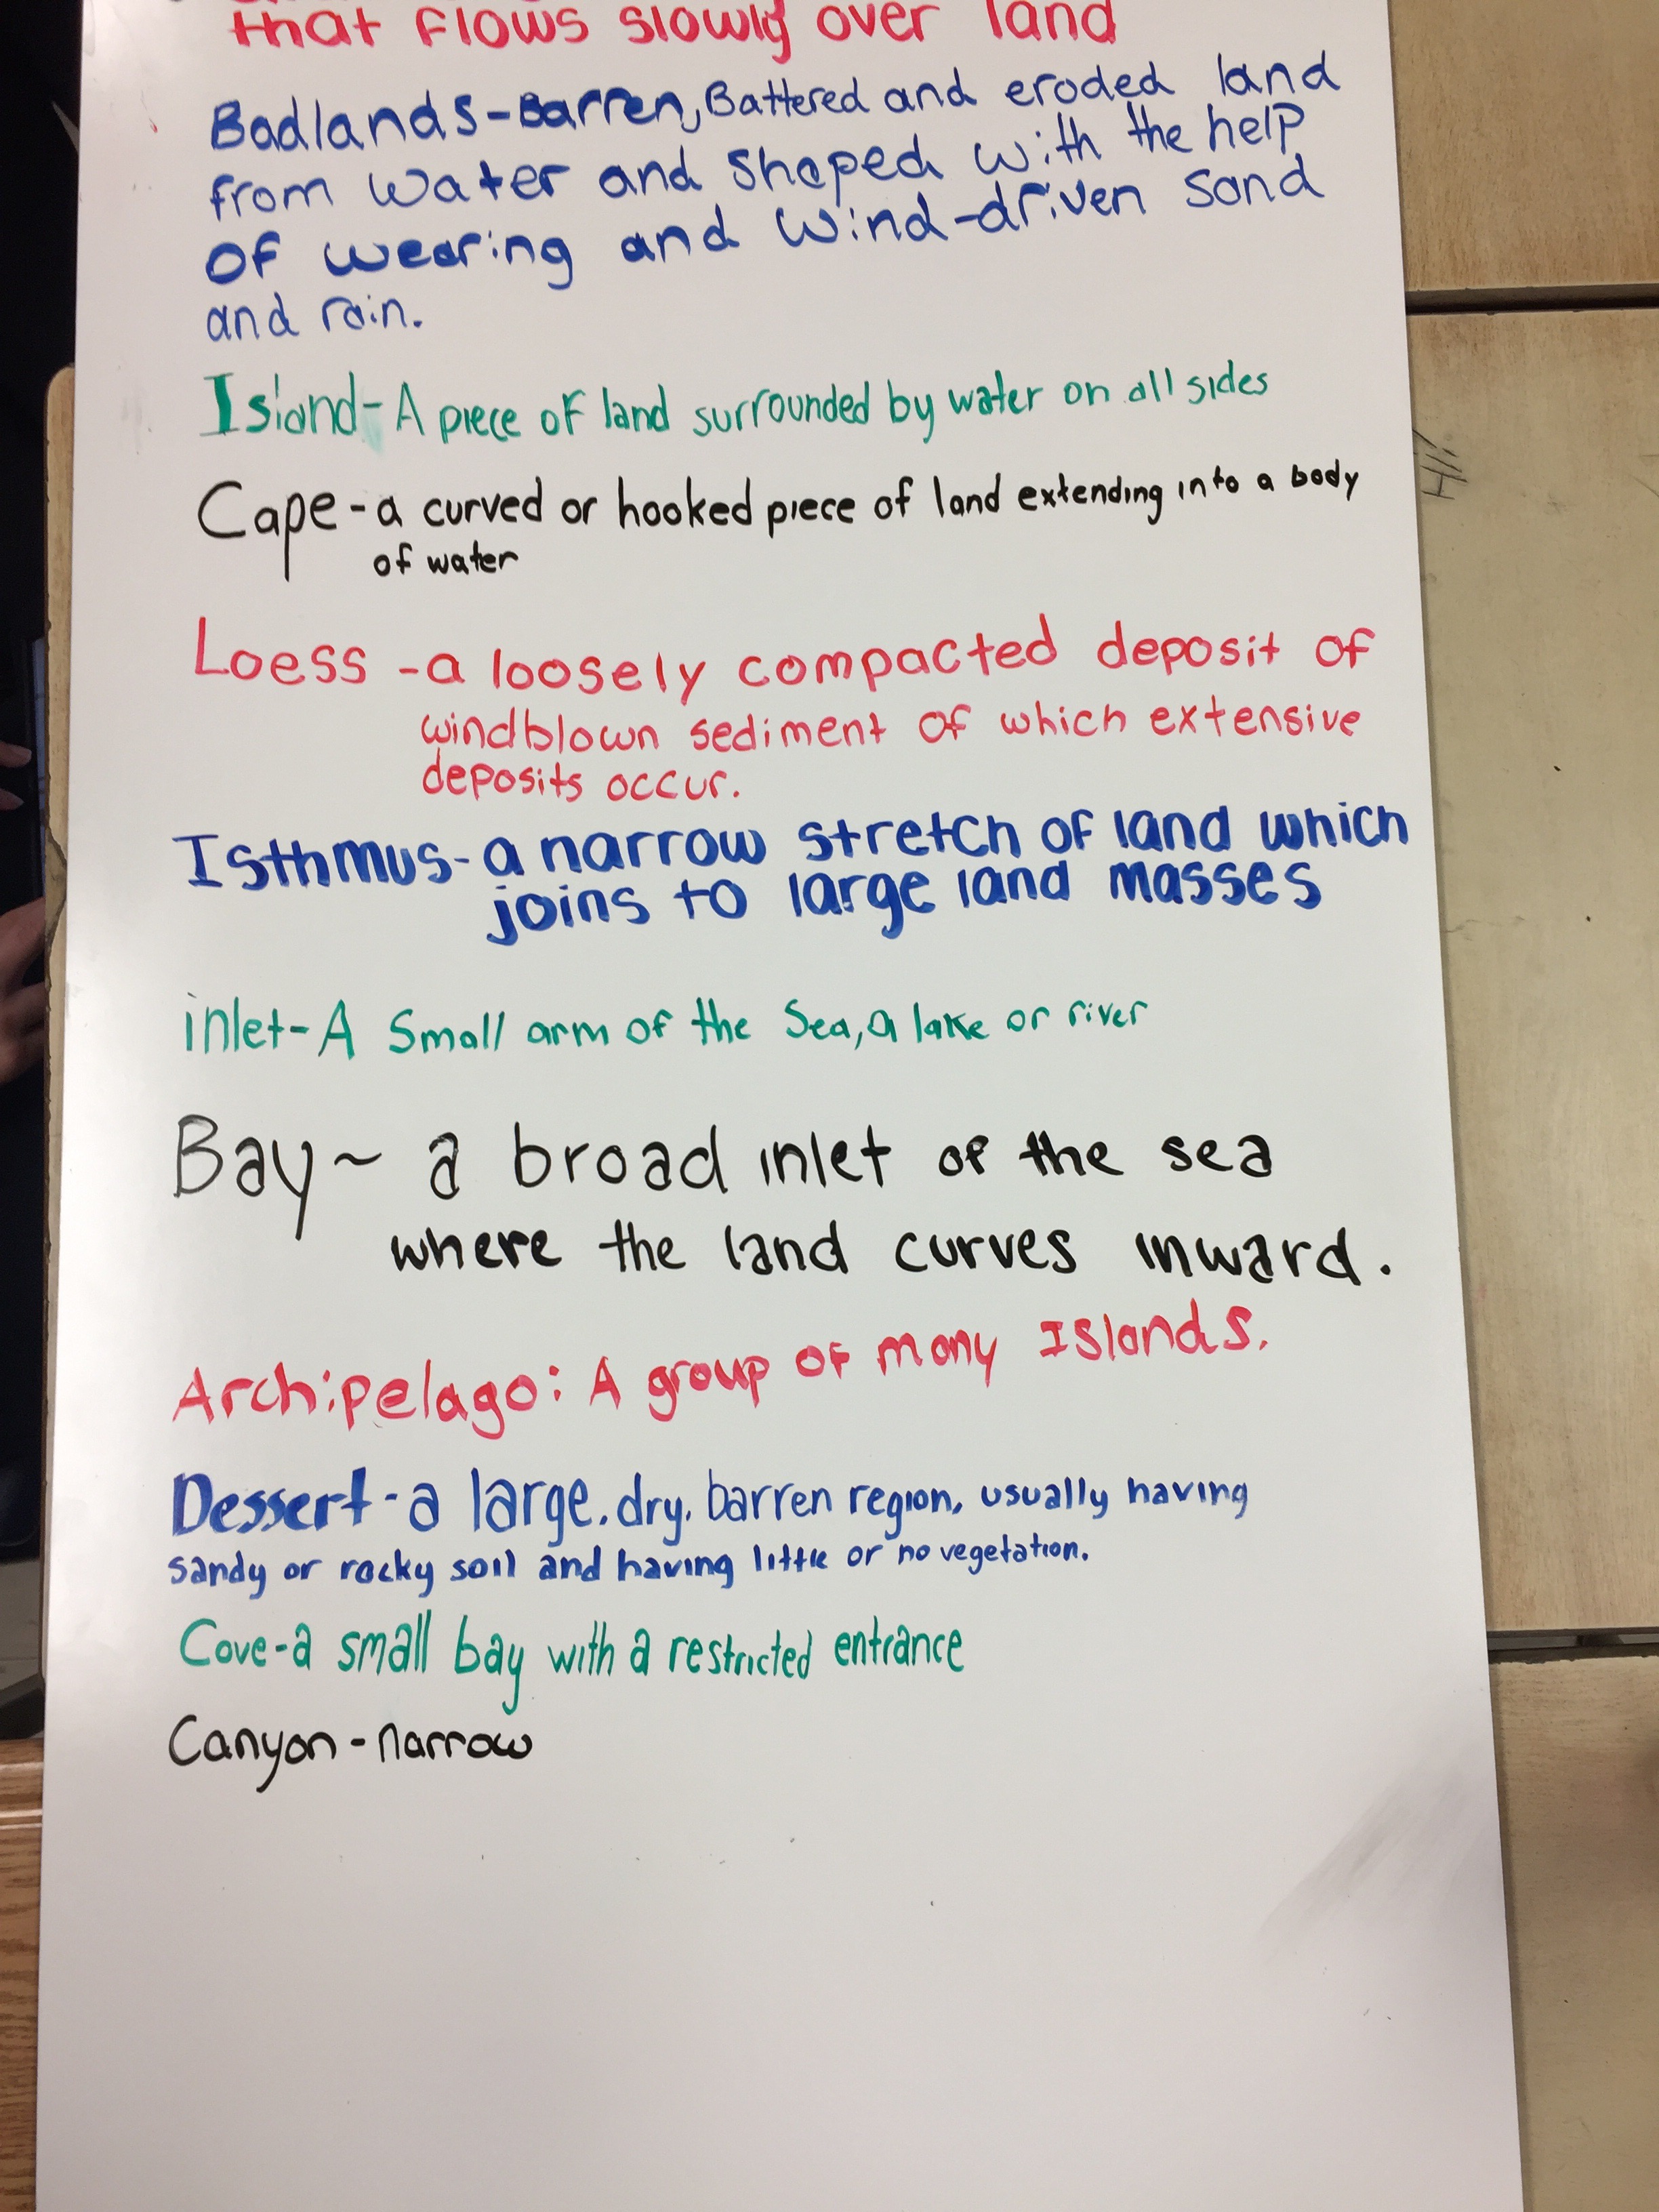 that flows slowly over land
Badlands-Barren, Battered and eroded land
from water and shaped with the help
of wearing and wind-driven sand
and rain.
Island-A piece of land surrounded by water on all sides
Cape-a curved or hooked piece of land extending into a body
of water
Loess-a loosely compacted deposit of
windblown sediment of which extensive
deposits occur.
Isthmus-a narrow stretch of land which
joins to large land masses
inlet-A small arm of the sea, a lake or river
Bay~ a broad inlet of the sea
where the land curves inward.
Archipelago: A group of many Islands.
Dessert-a large, dry, barren region, usually having
sandy or rocky soil and having little or no vegetation.
Cove-a small bay with a restricted entrance
Canyon-narrow